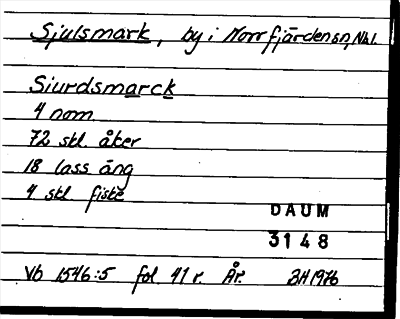 Sjulsmark, by i Norrfjärdens sn, Nbl.
Siurdsmarck
4 nom
72 skl. åker
18 lass äng
4 skl fiske
DAUM
3148
Vb 1546:5 fol. 41 r. År. BH 1976